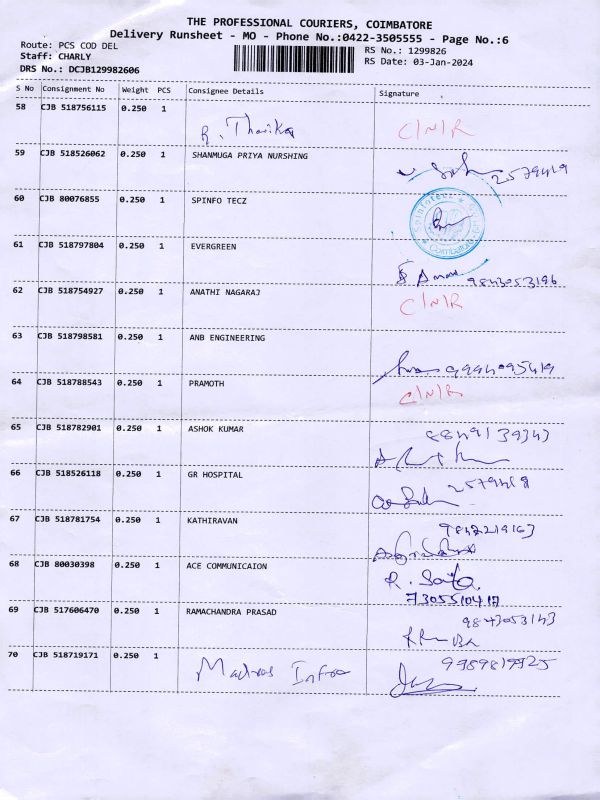 THE PROFESSIONAL COURIERS, COIMBATORE
Delivery Runsheet - MO - Phone No.:0422-3505555 - Page No.:6
Route: PCS COD DEL RS No.: 1299826
Staff: CHARLY RS Date: 03-Jan-2024
DRS No.: DCJB129982606
S No Consignment No Weight PCS Consignee Details Signature
58 CJB 518756115 0.250 1 R. C/N/R
59 CJB 518526062 0.250 1 SHANMUGA PRIYA NURSHING 2579419
60 CJB 80076855 0.250 1 SPINFO TECZ Coimbatore
61 CJB 518797804 0.250 1 EVERGREEN 9843053196
62 CJB 518754927 0.250 1 ANATHI NAGARAJ C/N/R
63 CJB 518798581 0.250 1 ANB ENGINEERING
64 CJB 518788543 0.250 1 PRAMOTH C/N/R
65 CJB 518782901 0.250 1 ASHOK KUMAR
66 CJB 518526118 0.250 1 GR HOSPITAL
67 CJB 518781754 0.250 1 KATHIRAVAN
68 CJB 80030398 0.250 1 ACE COMMUNICAION R.
7305510417
69 CJB 517606470 0.250 1 RAMACHANDRA PRASAD 9843053143
70 CJB 518719171 0.250 1 Madras Infra